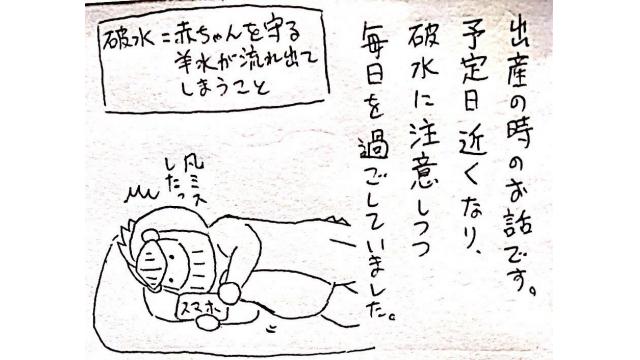 出産の時のお話です。
予定日近くなり、
破水に注意しつつ
毎日を過ごしていました。
破水=赤ちゃんを守る
羊水が流れ出て
しまうこと
凡ミス
したっ
スマホ